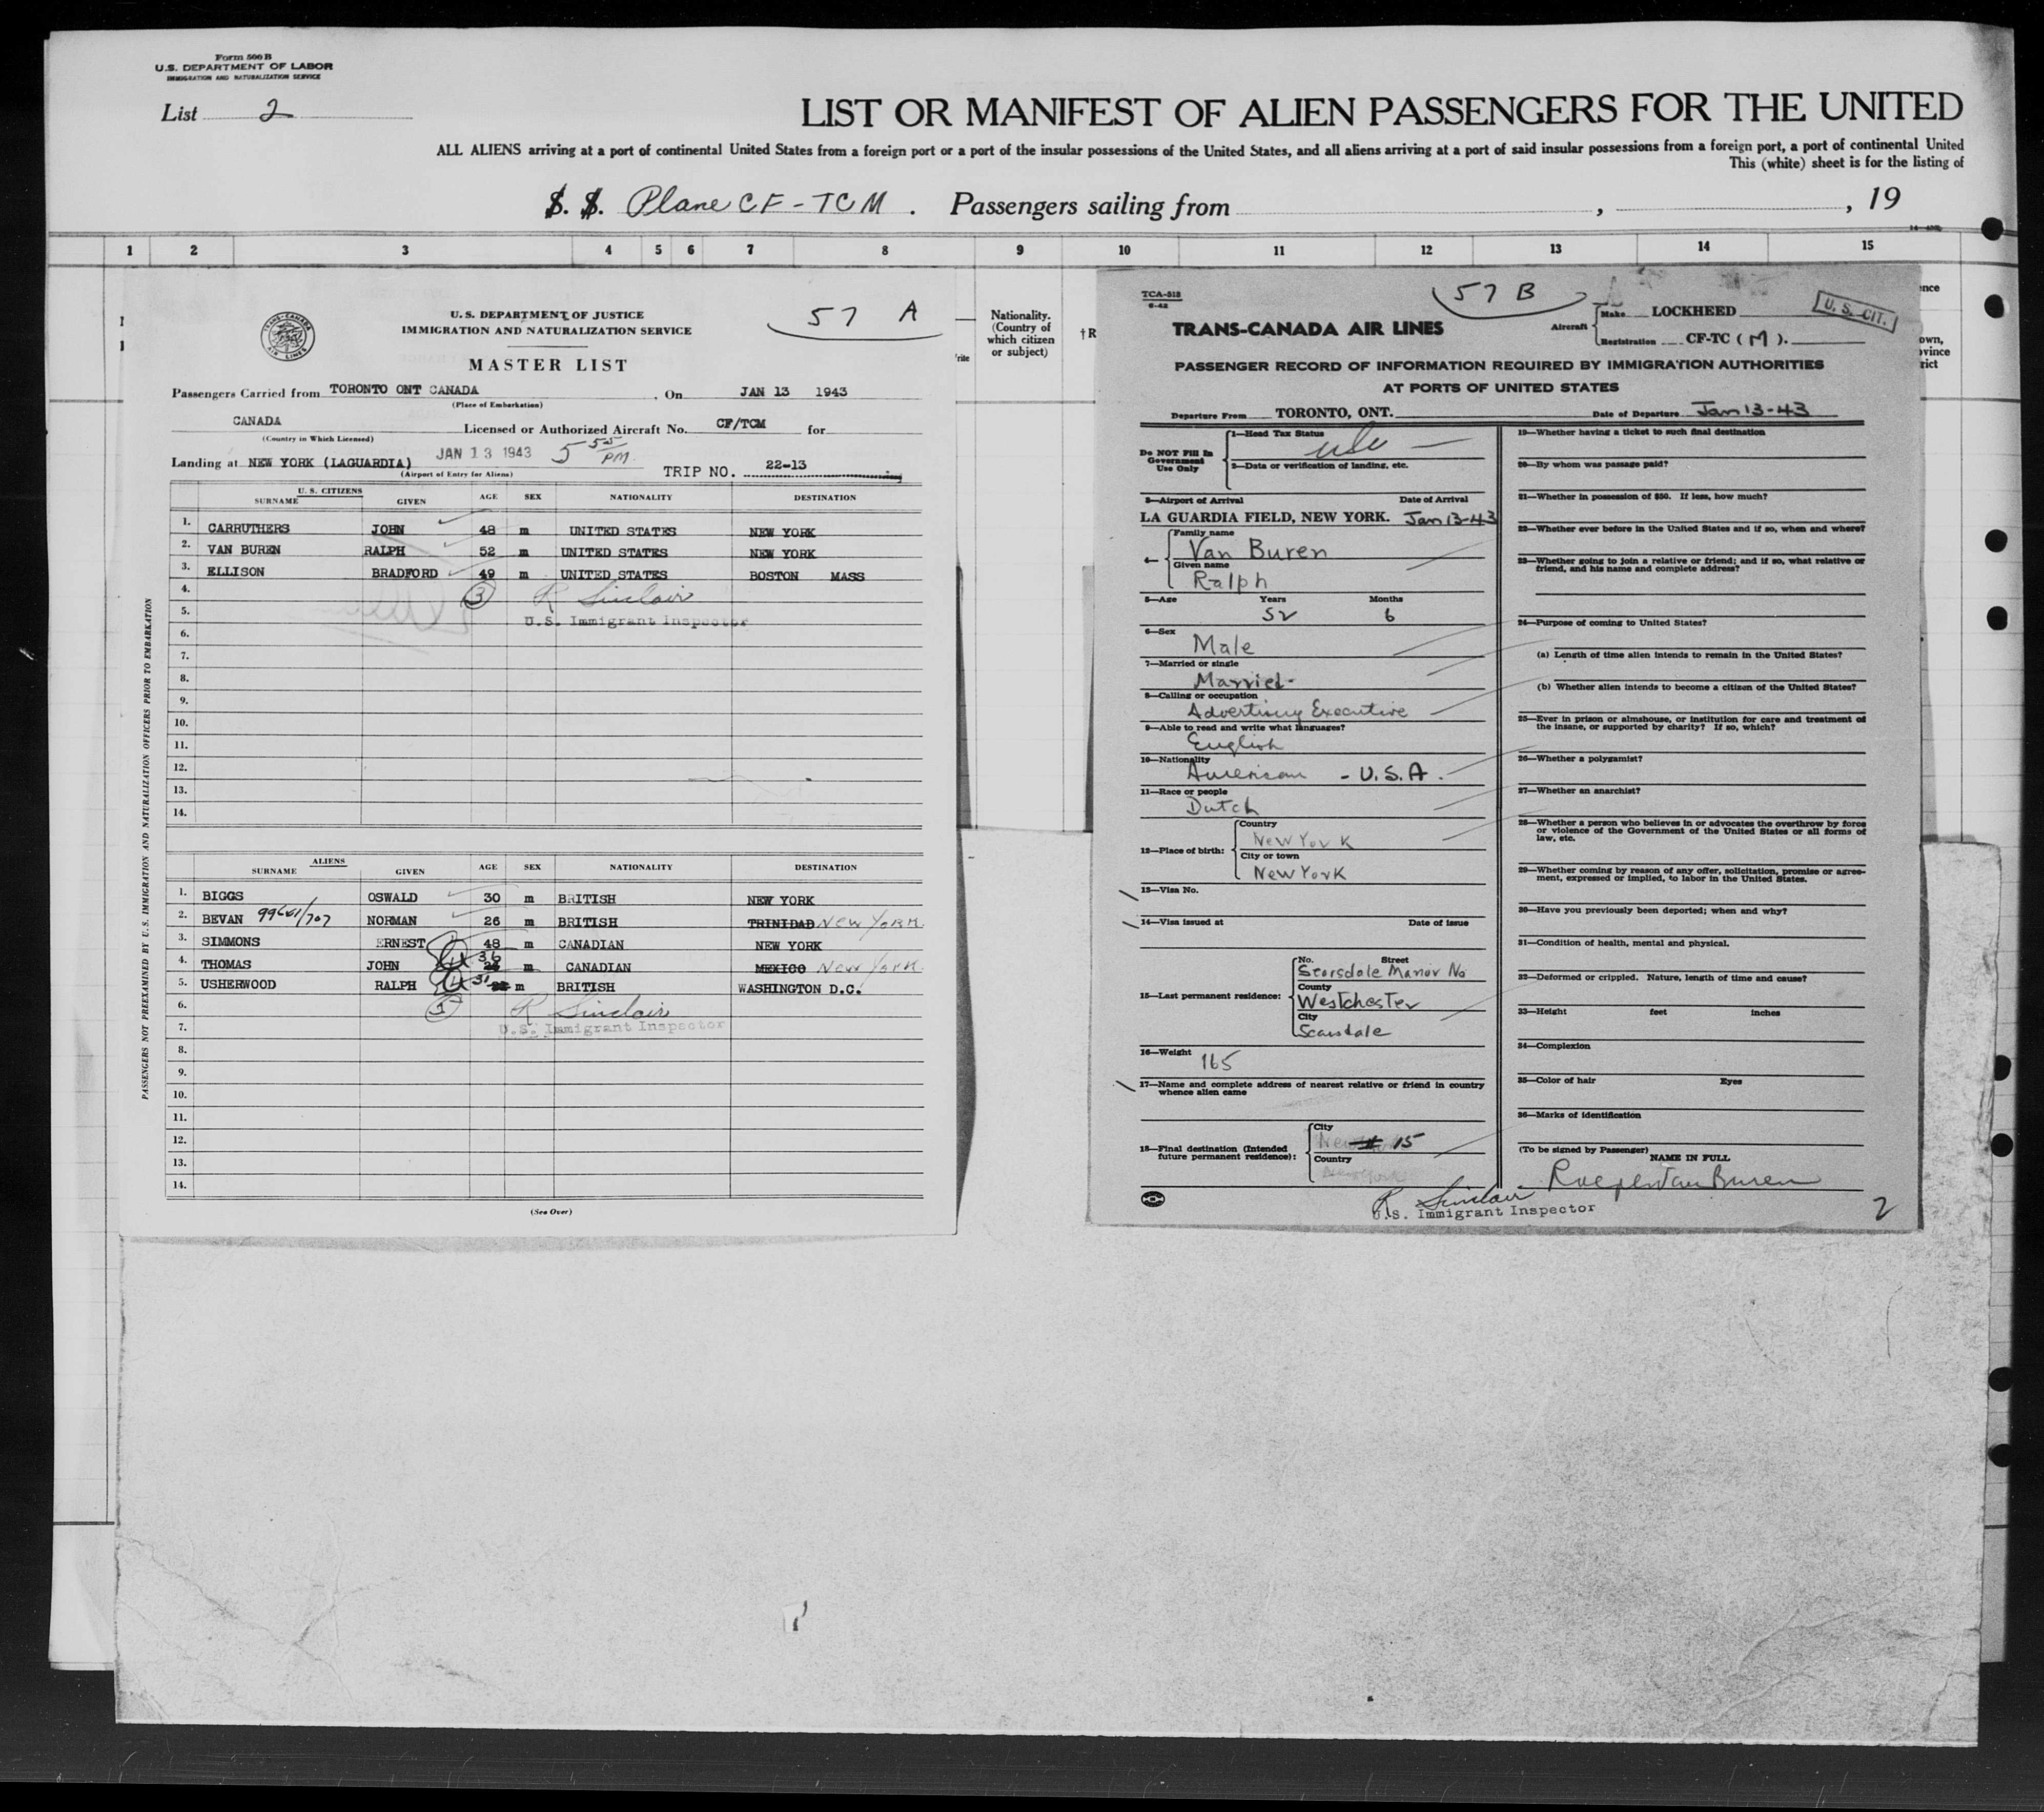 Form 500 B
U.S. DEPARTMENT OF LABOR
IMMIGRATION AND NATURALIZATION SERVICE
List 2
LIST OR MANIFEST OF ALIEN PASSENGERS FOR THE UNITED
ALL ALIENS arriving at a port of continental United States from a foreign port or a port of the insular possessions of the United States, and all aliens arriving at a port of said insular possessions from a foreign port, a port of continental United
This (white) sheet is for the listing of
S. S. Plane CF-TCM. Passengers sailing from , , 19
1 2 3 4 5 6 7 8 9 10 11 12 13 14 15
Nationality.
(Country of
which citizen
or subject)
† R
57 A
U.S. DEPARTMENT OF JUSTICE
IMMIGRATION AND NATURALIZATION SERVICE
TRANS-CANADA AIR LINES
MASTER LIST
Passengers Carried from TORONTO ONT CANADA , On JAN 13 1943
(Place of Embarkation)
CANADA Licensed or Authorized Aircraft No. CF/TCM for
(Country in Which Licensed)
Landing at NEW YORK (LAGUARDIA) JAN 13 1943 5 55 PM.
(Airport of Entry for Aliens)
TRIP NO. 22-13
U. S. CITIZENS
SURNAME GIVEN AGE SEX NATIONALITY DESTINATION
1. CARRUTHERS JOHN 48 m UNITED STATES NEW YORK
2. VAN BUREN RALPH 52 m UNITED STATES NEW YORK
3. ELLISON BRADFORD 49 m UNITED STATES BOSTON MASS
4. 3 R Sinclair
5. U.S. Immigrant Inspector
6.
7.
8.
9.
10.
11.
12.
13.
14.
ALIENS
SURNAME GIVEN AGE SEX NATIONALITY DESTINATION
1. BIGGS OSWALD 30 m BRITISH NEW YORK
2. BEVAN NORMAN 26 m BRITISH TRINIDAD NEW YORK
3. SIMMONS ERNEST 48 m CANADIAN NEW YORK
4. THOMAS JOHN 36 m CANADIAN MEXICO NEW YORK
5. USHERWOOD RALPH 31 m BRITISH WASHINGTON D.C.
6. 5 R Sinclair
7. U.S. Immigrant Inspector
8.
9.
10.
11.
12.
13.
14.
(See Over)
PASSENGERS NOT PREEXAMINED BY U.S. IMMIGRATION AND NATURALIZATION OFFICERS PRIOR TO EMBARKATION
TCA-518
6-42
57 B
U. S. CIT.
TRANS-CANADA AIR LINES
Aircraft
Make LOCKHEED
Registration CF-TC (M).
PASSENGER RECORD OF INFORMATION REQUIRED BY IMMIGRATION AUTHORITIES
AT PORTS OF UNITED STATES
Departure From TORONTO, ONT. Date of Departure Jan 13-43
Do NOT Fill In
Government
Use Only
1—Head Tax Status
2—Data or verification of landing, etc.
3—Airport of Arrival Date of Arrival
LA GUARDIA FIELD, NEW YORK. Jan 13-43
4—
Family name
Van Buren
Given name
Ralph
5—Age Years Months
52 6
6—Sex
Male
7—Married or single
Married
8—Calling or occupation
Advertising Executive
9—Able to read and write what languages?
English
10—Nationality
American - U.S.A.
11—Race or people
Dutch
12—Place of birth:
Country
New York
City or town
New York
13—Visa No.
14—Visa issued at Date of issue
15—Last permanent residence:
No. Street
Scarsdale Manor No
County
Westchester
City
Scarsdale
16—Weight 165
17—Name and complete address of nearest relative or friend in country
whence alien came
18—Final destination (Intended
future permanent residence):
City
15
Country
19—Whether having a ticket to such final destination
20—By whom was passage paid?
21—Whether in possession of $50. If less, how much?
22—Whether ever before in the United States and if so, when and where?
23—Whether going to join a relative or friend; and if so, what relative or
friend, and his name and complete address?
24—Purpose of coming to United States?
(a) Length of time alien intends to remain in the United States?
(b) Whether alien intends to become a citizen of the United States?
25—Ever in prison or almshouse, or institution for care and treatment of
the insane, or supported by charity? If so, which?
26—Whether a polygamist?
27—Whether an anarchist?
28—Whether a person who believes in or advocates the overthrow by force
or violence of the Government of the United States or all forms of
law, etc.
29—Whether coming by reason of any offer, solicitation, promise or agree-
ment, expressed or implied, to labor in the United States.
30—Have you previously been deported; when and why?
31—Condition of health, mental and physical.
32—Deformed or crippled. Nature, length of time and cause?
33—Height feet inches
34—Complexion
35—Color of hair Eyes
36—Marks of identification
(To be signed by Passenger)
NAME IN FULL
Ralph Van Buren
R Sinclair
U.S. Immigrant Inspector
2